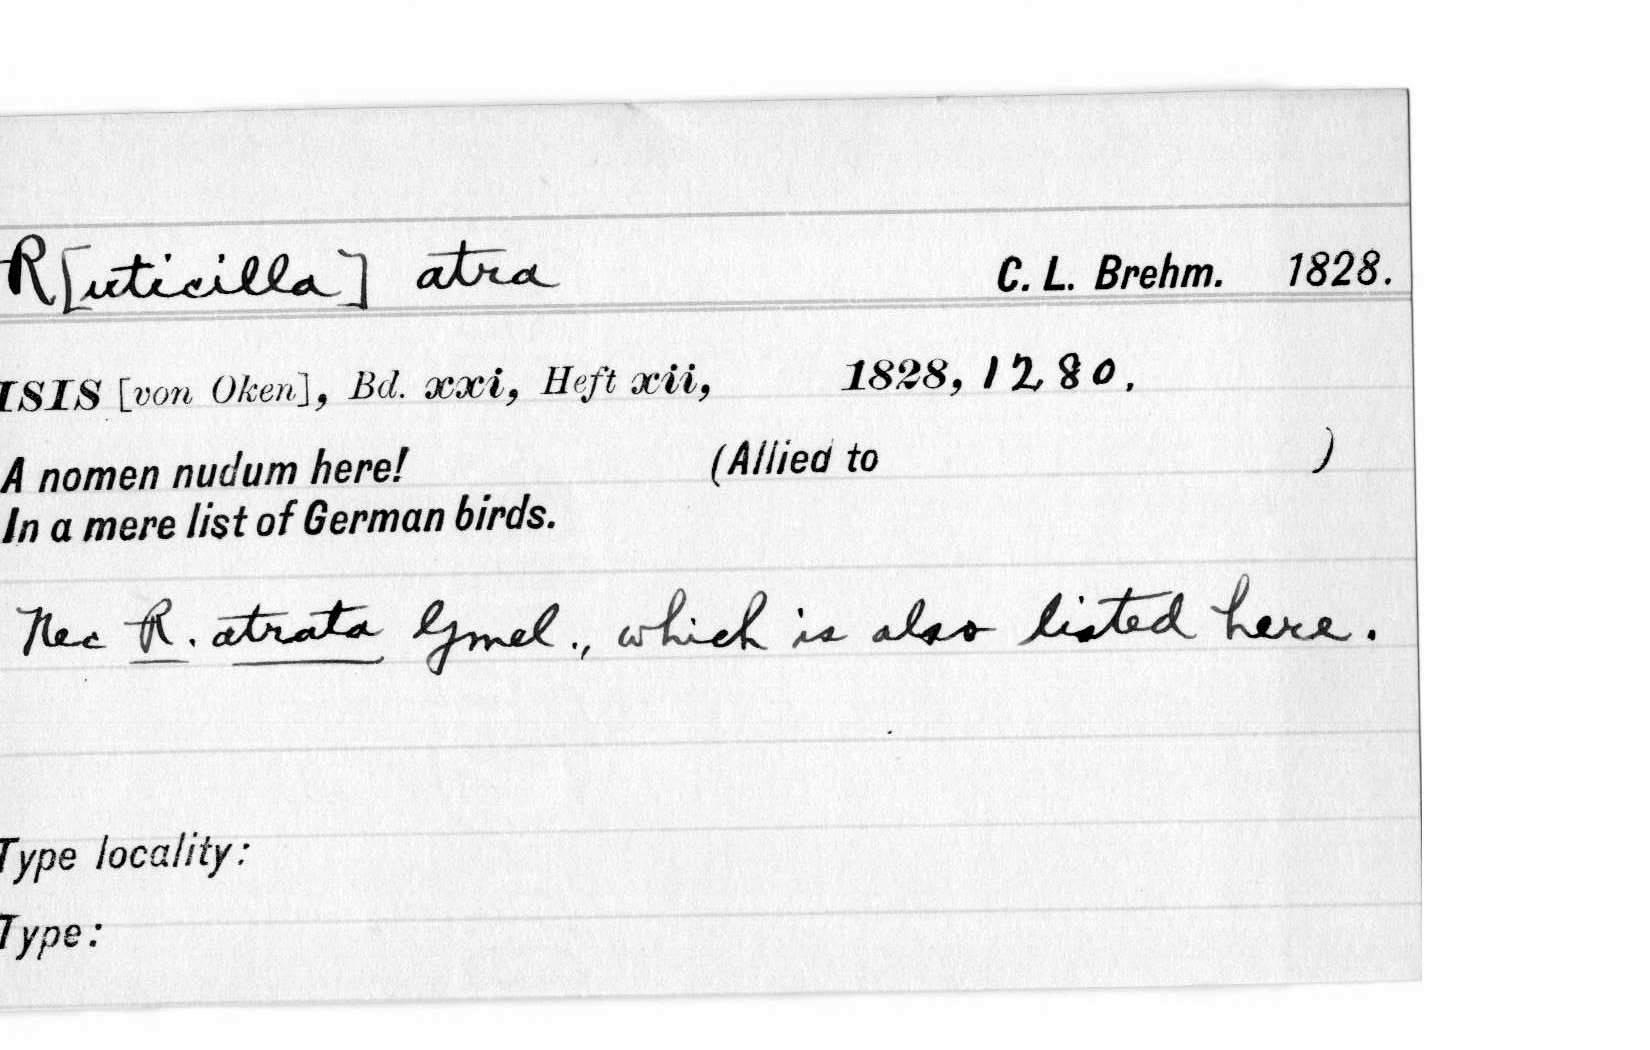 R[uticilla] atra C. L. Brehm. 1828.
ISIS [von Oken], Bd. xxi, Heft xii, 1828, 1280.
A nomen nudum here! (Allied to )
In a mere list of German birds.
Nec R. atrata Gmel., which is also listed here.
Type locality:
Type: